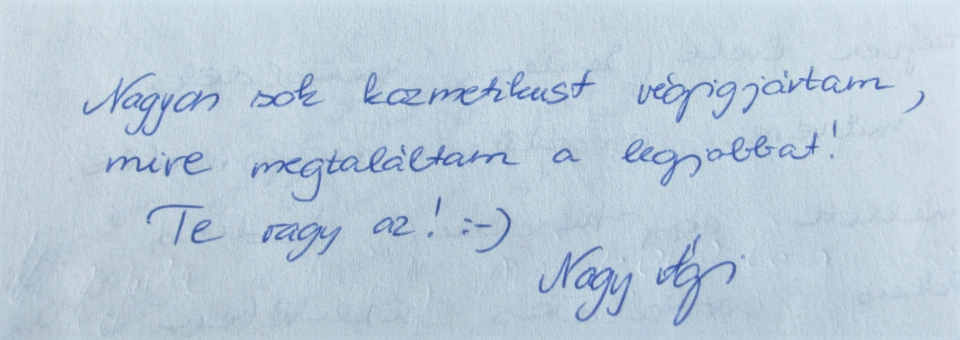 Nagyon sok kozmetikust végigjártam,
mire megtaláltam a legjobbat!
Te vagy az! :-)
Nagy Ági